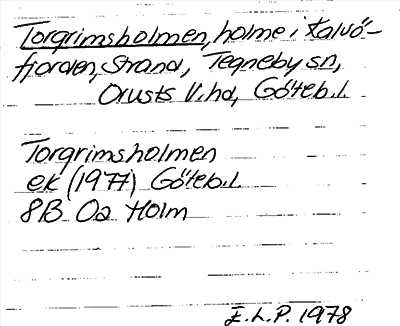 Torgrimsholmen, holme i Kalvö-
fjorden, Strand, Tegneby sn,
Orusts V. hd, Göteb. l.
Torgrimsholmen
ek (1977) Göteb. l.
8B 0a Holm
E.L.P. 1978